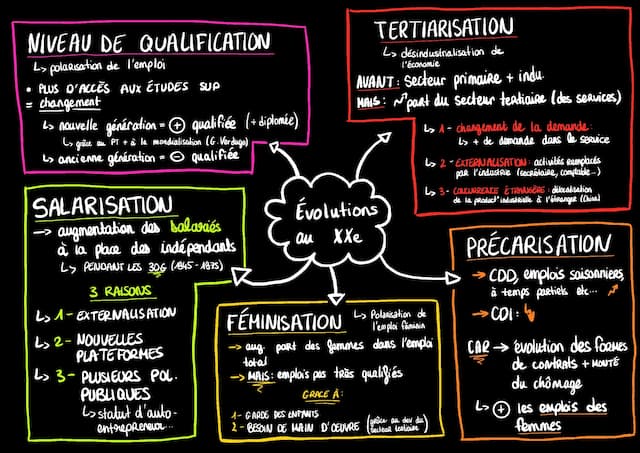 NIVEAU DE QUALIFICATION
↳ polarisation de l'emploi
• PLUS D'ACCÈS AUX ÉTUDES SUP
= changement
↳ nouvelle génération = ⊕ qualifiée (+ diplomée)
↳ grâce au PT + à la mondialisation (E. Verdugo)
↳ ancienne génération = ⊖ qualifiée
TERTIARISATION
↳ désindustrialisation de
l'économie
AVANT : Secteur primaire + indu.
MAIS : ↗ part du secteur tertiaire (des services)
↳ 1 - changement de la demande :
↳ + de demande dans le service
↳ 2 - EXTERNALISATION : activités remplacés
par l'industrie (secrétaire, comptable...)
↳ 3 - CONCURRENCE ÉTRANGÈRE : délocalisation
de la product° industrielle à l'étranger (Chine)
Évolutions
au XXe
SALARISATION
→ augmentation des salariés
à la place des indépendants
↳ PENDANT LES 30G (1945 - 1975)
3 RAISONS
↳ 1 - EXTERNALISATION
↳ 2 - NOUVELLES
PLATEFORMES
↳ 3 - PLUSIEURS POL.
PUBLIQUES
↳ statut d'auto-
entrepreneur...
FÉMINISATION
↳ Polarisation de
l'emploi féminin
→ aug. part des femmes dans l'emploi
total
→ MAIS : emplois pas très qualifiés
GRACE À :
1 - GARDE DES ENFANTS
2 - BESOIN DE MAIN D'OEUVRE (grâce au dev du
secteur tertiaire)
PRÉCARISATION
→ CDD, emplois saisonniers,
à temps partiels etc... ↗
→ CDI : ↘
CAR → évolution des formes
de contrats + MONTÉ
du chômage
↳ ⊕ les emplois des
femmes